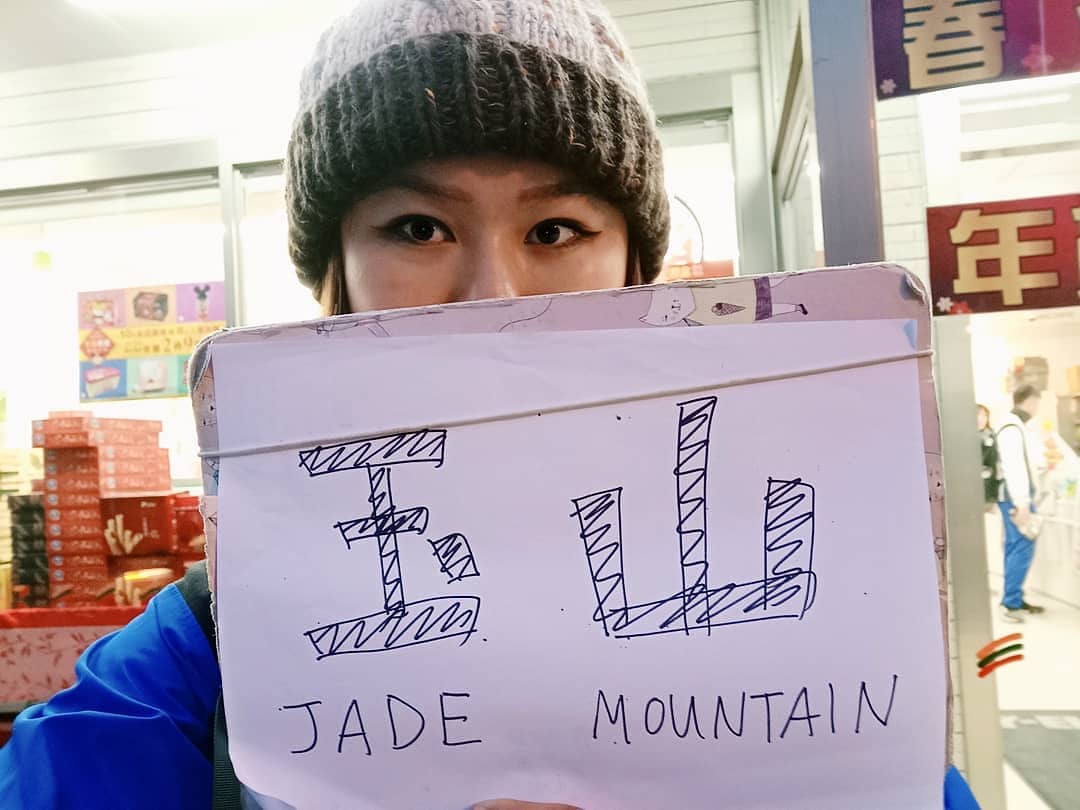 春
年
玉山
JADE MOUNTAIN